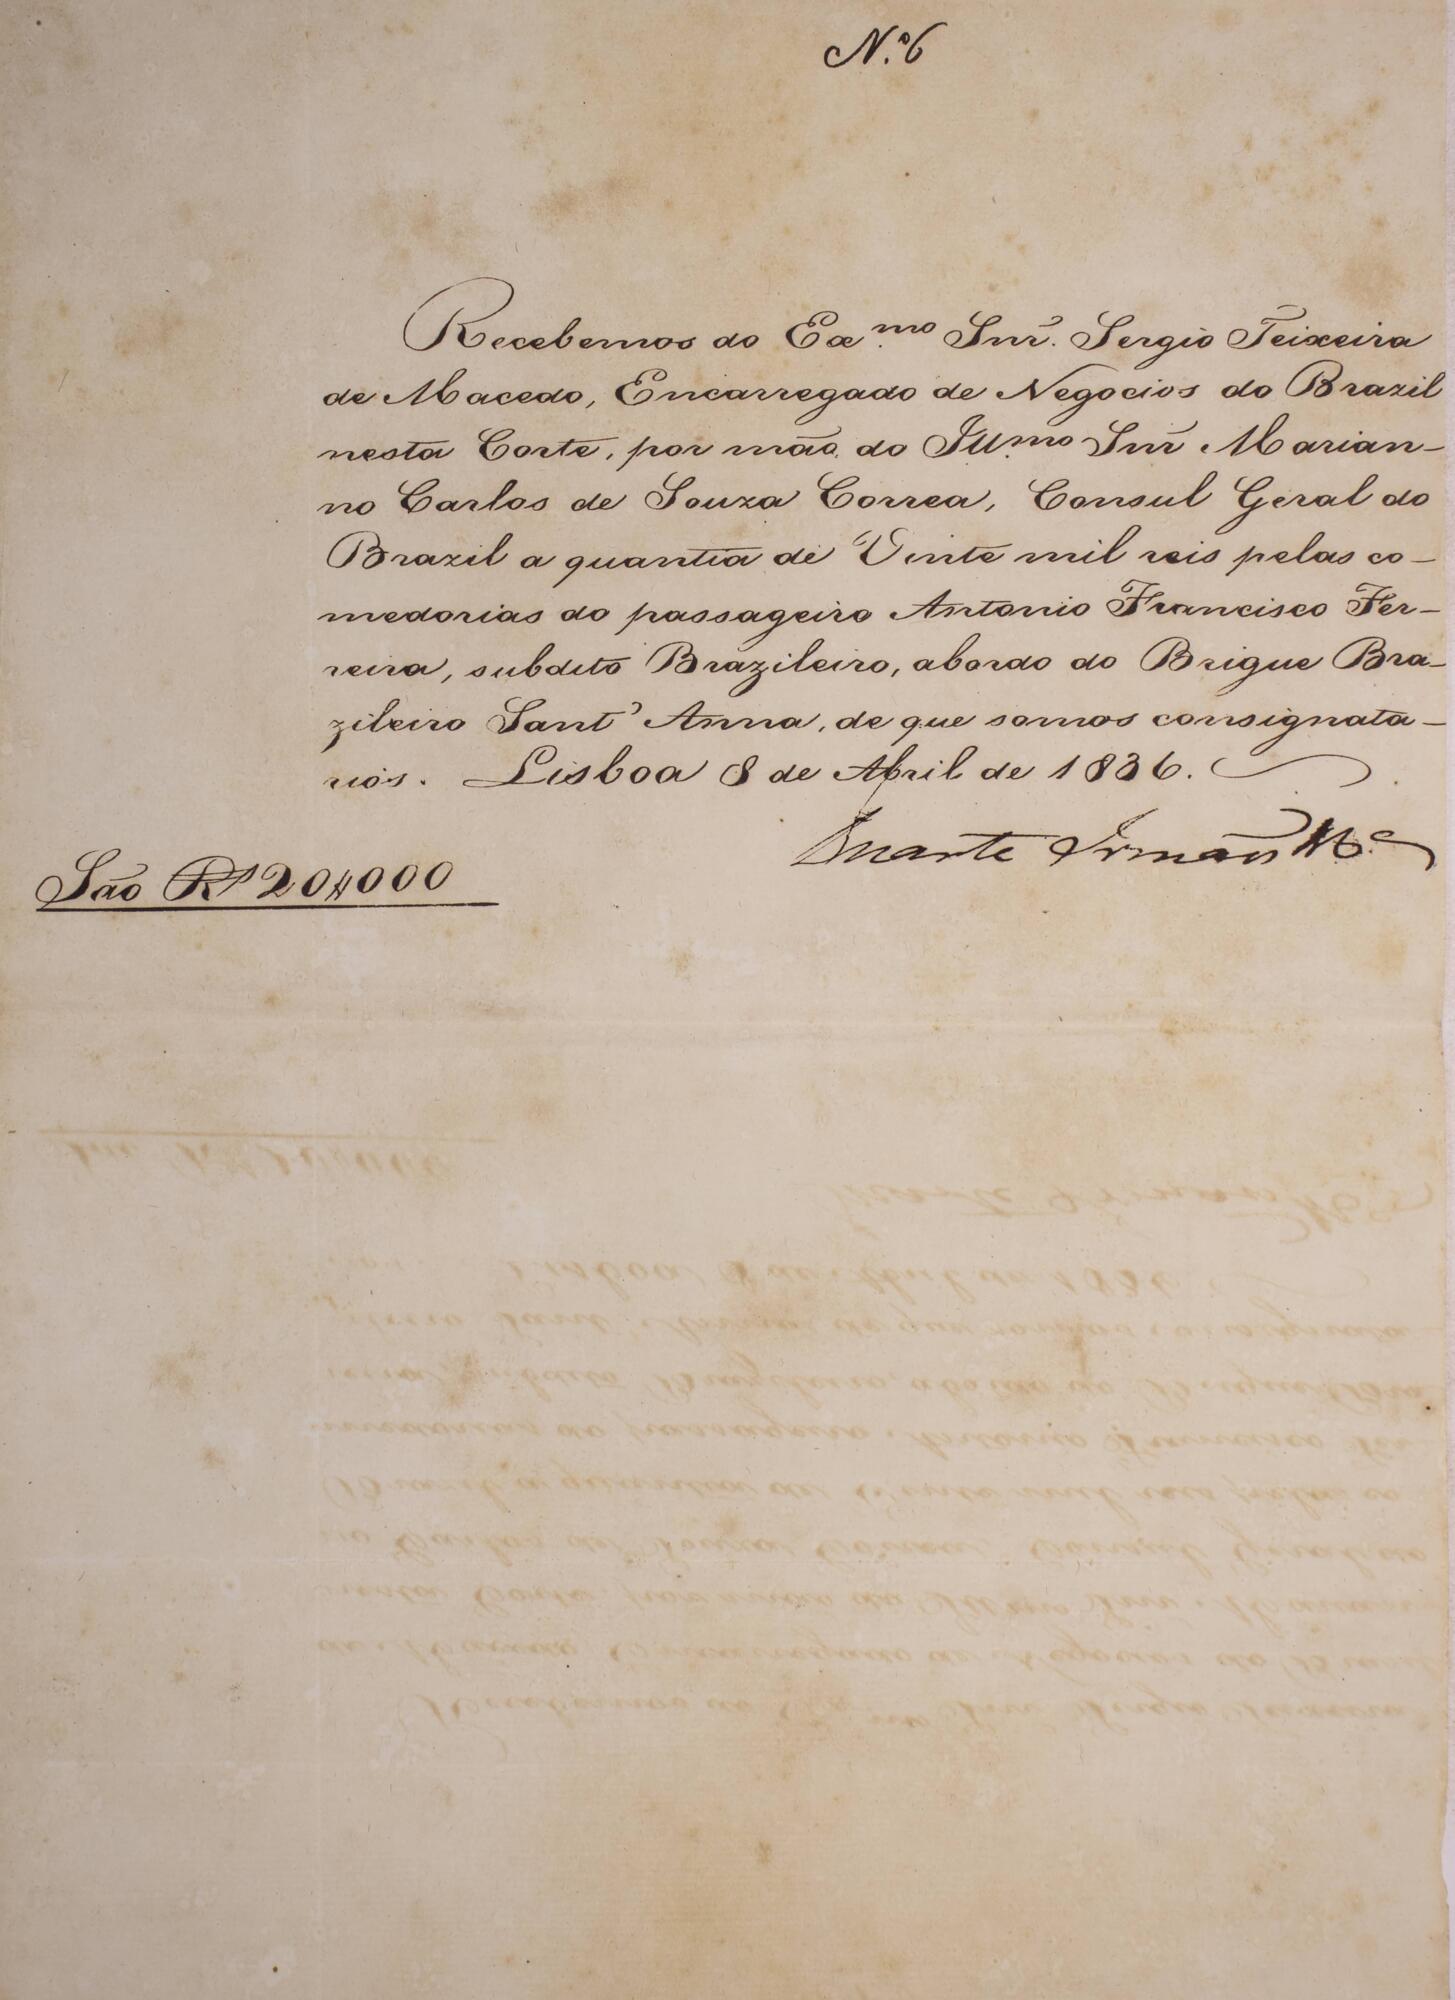 N.º 6
Recebemos do Ex.mo Snr. Sergio Teixeira
de Macedo, Encarregado de Negocios do Brazil
nesta Corte, por mão do Ill.mo Snr Marian-
no Carlos de Souza Correa, Consul Geral do
Brazil a quantia de Vinte mil reis pelas co-
medorias do passageiro Antonio Francisco Fer-
reira, subdito Brazileiro, abordo do Brigue Bra-
zileiro Sant' Anna, de que somos consignata-
rios. Lisboa 8 de Abril de 1836.
Duarte Irmãos
São Rs 20$000